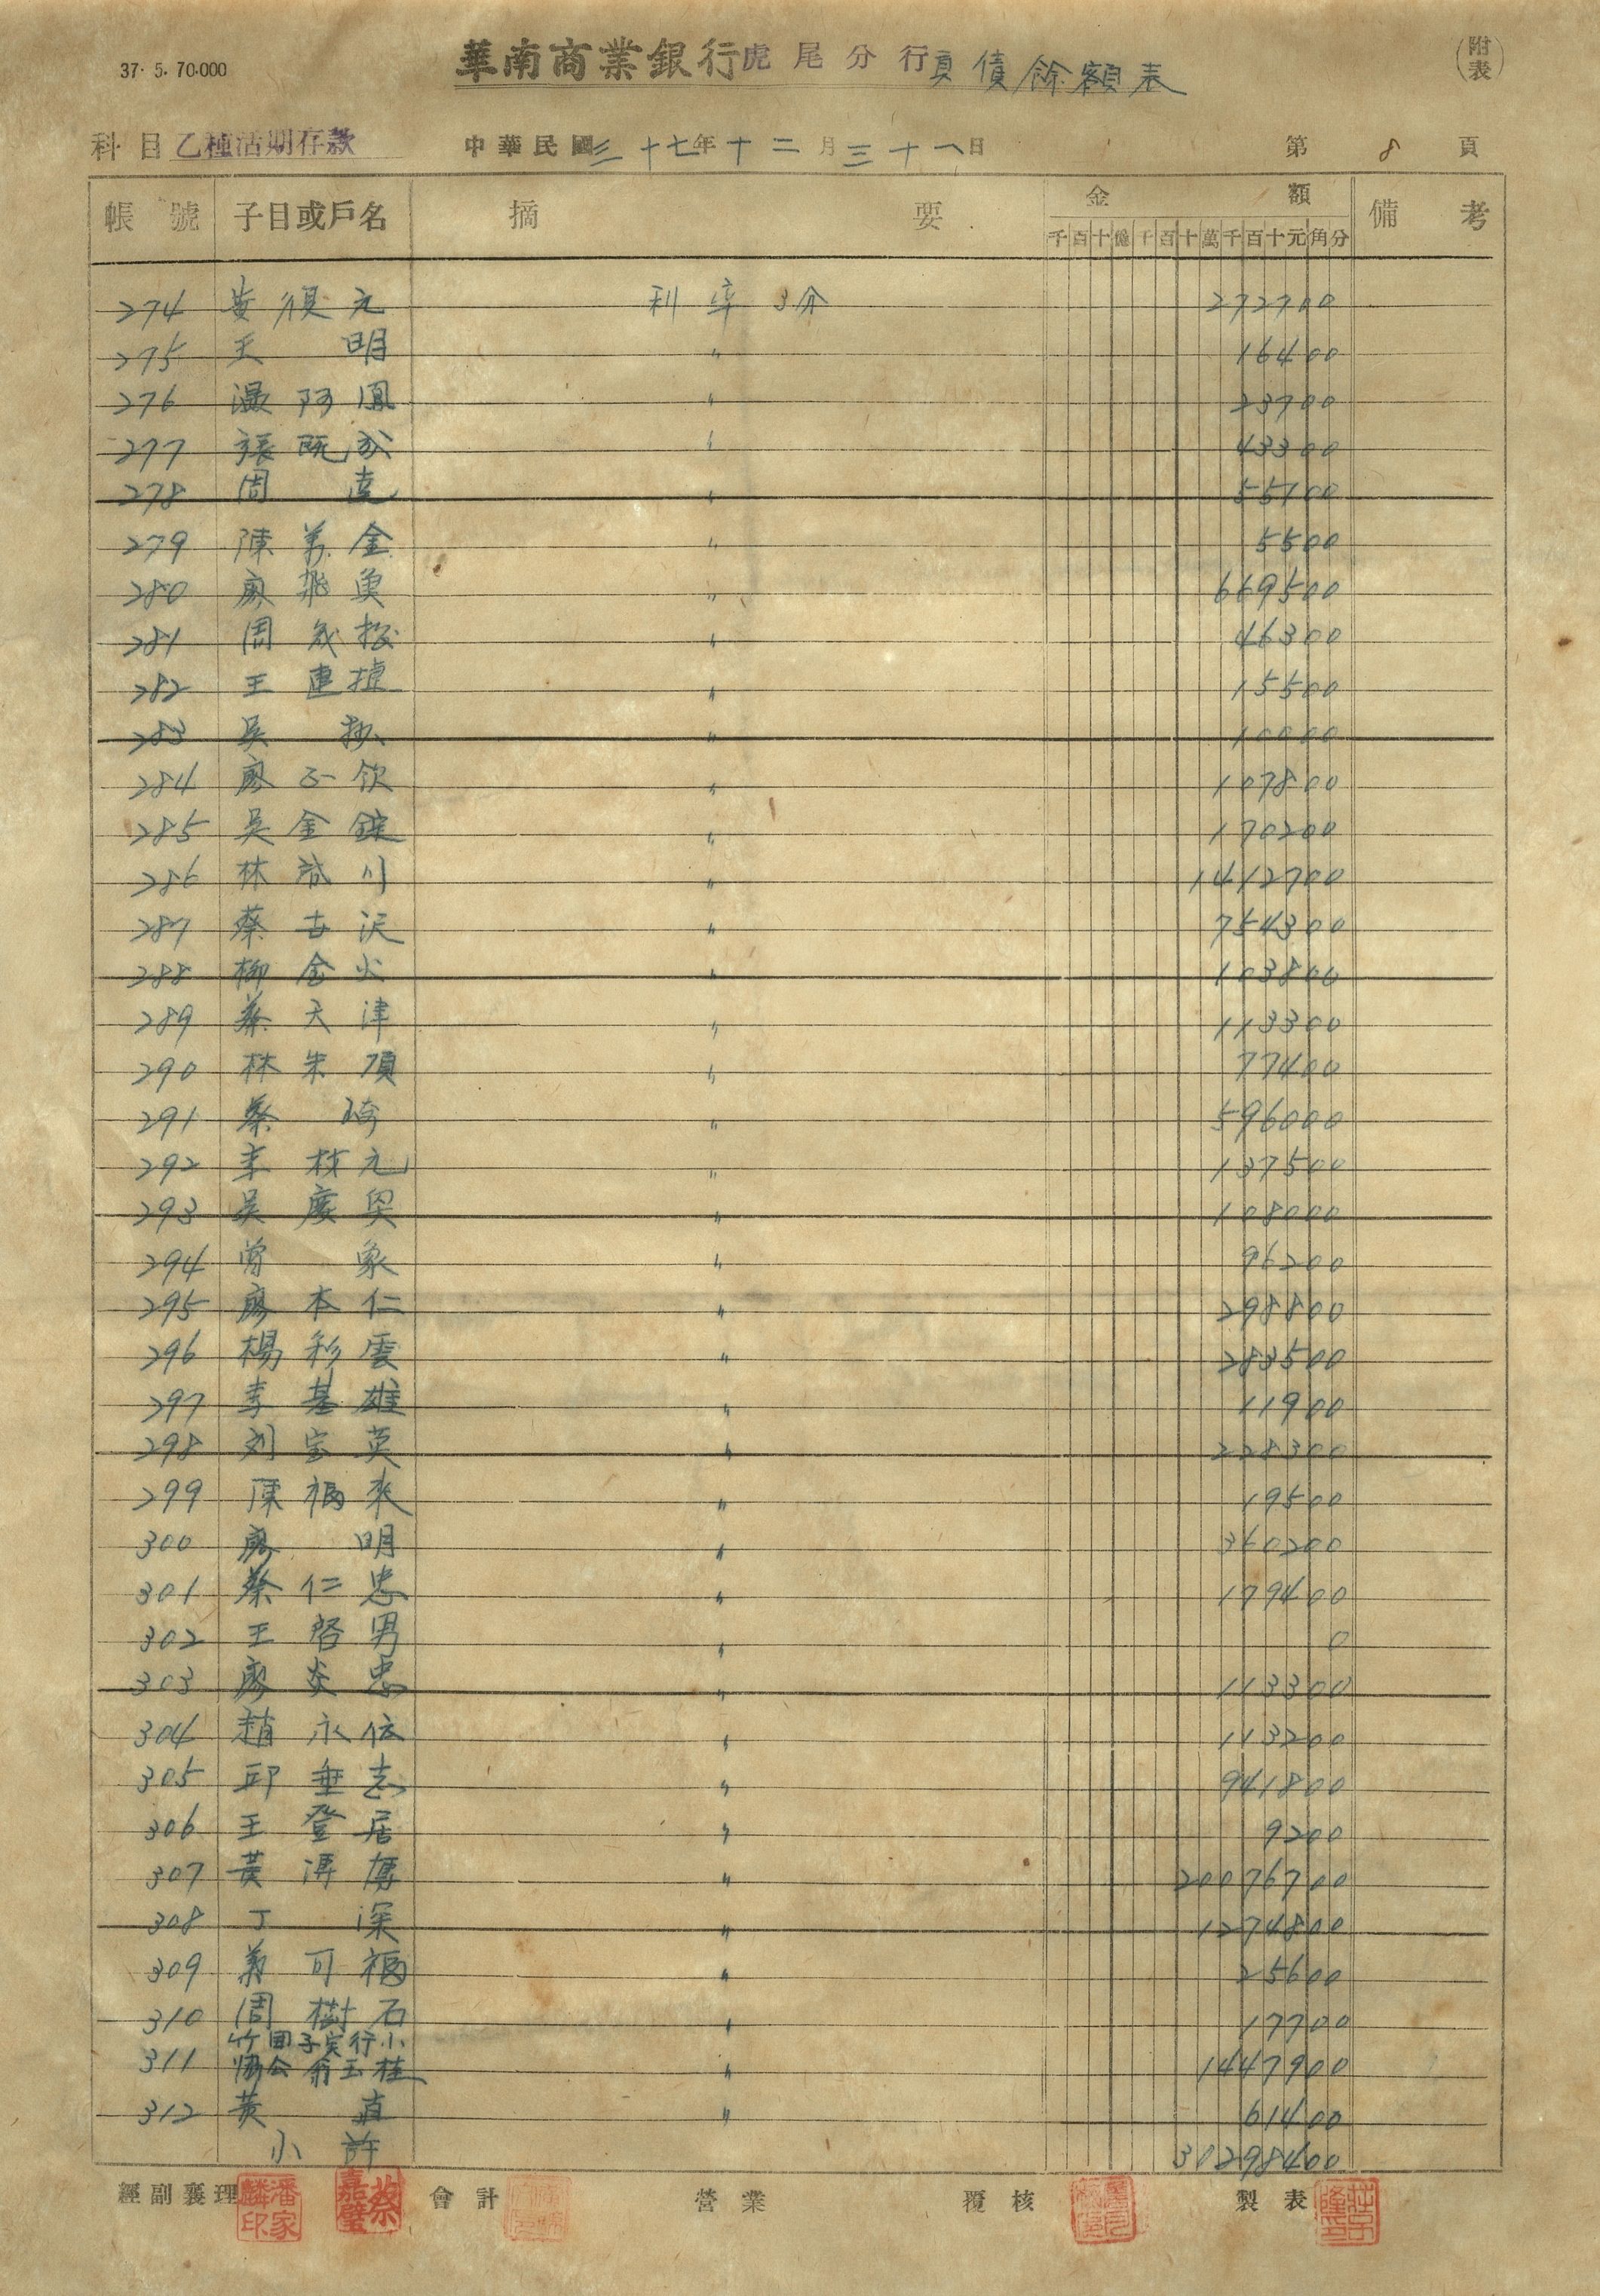 37. 5. 70.000
華南商業銀行虎尾分行負債餘額表
(附表)
科目 乙種活期存款 中華民國三十七年十二月三十一日 第 8 頁
帳號 子目或戶名 摘要 金額 備考
千百十億千百十萬千百十元角分
274 黃須元 利率3分 272700
275 王明 〃 16400
276 阿鳳 〃 23700
277 張既成 〃 43300
278 周 〃 55100
279 陳 金 〃 5500
280 廖飛 〃 669500
281 周 〃 46300
282 王 〃 15500
283 吳 〃 10000
284 廖正欽 〃 107800
285 吳金錠 〃 170200
286 林 川 〃 1412700
287 蔡吉 〃 754300
288 柳金火 〃 103800
289 蔡天津 〃 113300
290 林朱頂 〃 77400
291 蔡琦 〃 596000
292 李林元 〃 137500
293 吳慶 〃 108000
294 曾象 〃 96200
295 廖本仁 〃 298800
296 楊彩雲 〃 283500
297 李基雄 〃 11900
298 刘宝英 〃 228300
299 陳福來 〃 19500
300 廖明 〃 360200
301 蔡仁忠 〃 179400
302 王啓男 〃 0
303 廖炎忠 〃 113300
304 趙永信 〃 113200
305 邱垂志 〃 941800
306 王登居 〃 9200
307 黃 〃 20076700
308 丁深 〃 1274800
309 可福 〃 25600
310 周樹石 〃 17700
竹囬子实行小
311 協公翁玉桂 〃 1447900
312 黃直 〃 61400
小計 30298400
經副襄理 潘家麟印 蔡嘉璧 會計 營業 覆核 製表